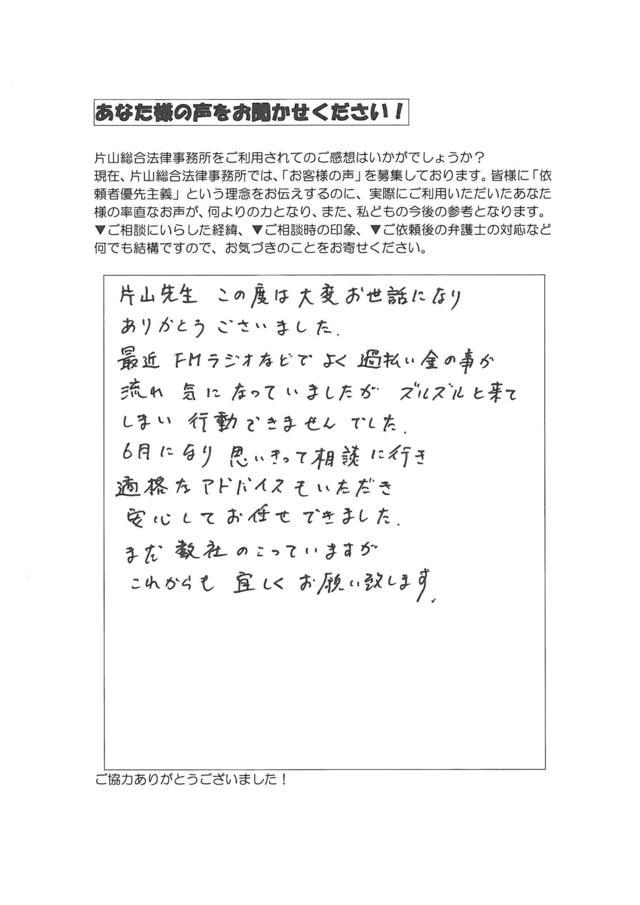 あなた様の声をお聞かせください！
片山総合法律事務所をご利用されてのご感想はいかがでしょうか？
現在、片山総合法律事務所では、「お客様の声」を募集しております。皆様に「依
頼者優先主義」という理念をお伝えするのに、実際にご利用いただいたあなた
様の率直なお声が、何よりの力となり、また、私どもの今後の参考となります。
▼ご相談にいらした経緯、▼ご相談時の印象、▼ご依頼後の弁護士の対応など
何でも結構ですので、お気づきのことをお寄せください。
片山先生 この度は大変お世話になり
ありがとうございました.
最近 FMラジオなどで よく 過払い金の事が
流れ 気に なっていましたが ズルズルと来て
しまい 行動できませんでした.
6月になり 思いきって相談に行き
適格なアドバイスもいただき
安心してお任せできました.
まだ 数社 のこっていますが
これからも 宜しく お願い致します.
ご協力ありがとうございました！